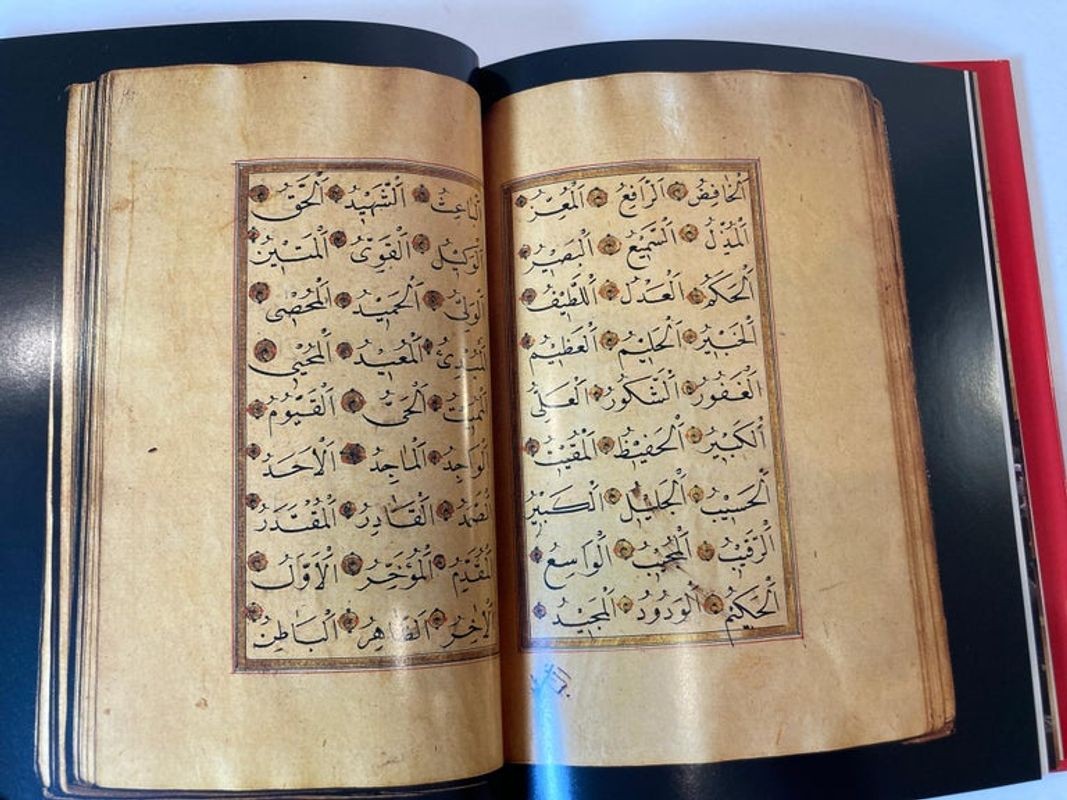 اَلْخَافِضُ اَلرَّافِعُ اَلْمُعِزُّ
اَلْمُذِلُّ اَلسَّمِيْعُ اَلْبَصِيْرُ
اَلْحَكَمُ اَلْعَدْلُ اَللَّطِيْفُ
اَلْخَبِيْرُ اَلْحَلِيْمُ اَلْعَظِيْمُ
اَلْغَفُورُ اَلشَّكُورُ اَلْعَلِىُّ
اَلْكَبِيْرُ اَلْحَفِيْظُ اَلْمُقِيْتُ
اَلْحَسِيْبُ اَلْجَلِيْلُ اَلْكَبِيْرُ
اَلرَّقِيْبُ اَلْمُجِيْبُ اَلْوَاسِعُ
اَلْحَكِيْمُ اَلْوَدُودُ اَلْمَجِيْدُ
اَلْبَاعِثُ اَلشَّهِيْدُ اَلْحَقُّ
اَلْوَكِيْلُ اَلْقَوِىُّ اَلْمَتِيْنُ
اَلْوَلِىُّ اَلْحَمِيْدُ اَلْمُحْصِى
اَلْمُبْدِئُ اَلْمُعِيْدُ اَلْمُحْيِى
اَلْمُمِيْتُ اَلْحَىُّ اَلْقَيُّومُ
اَلْوَاجِدُ اَلْمَاجِدُ اَلْاَحَدُ
اَلصَّمَدُ اَلْقَادِرُ اَلْمُقْتَدِرُ
اَلْمُقَدِّمُ اَلْمُؤَخِّرُ اَلْاَوَّلُ
اَلْاٰخِرُ اَلظَّاهِرُ اَلْبَاطِنُ